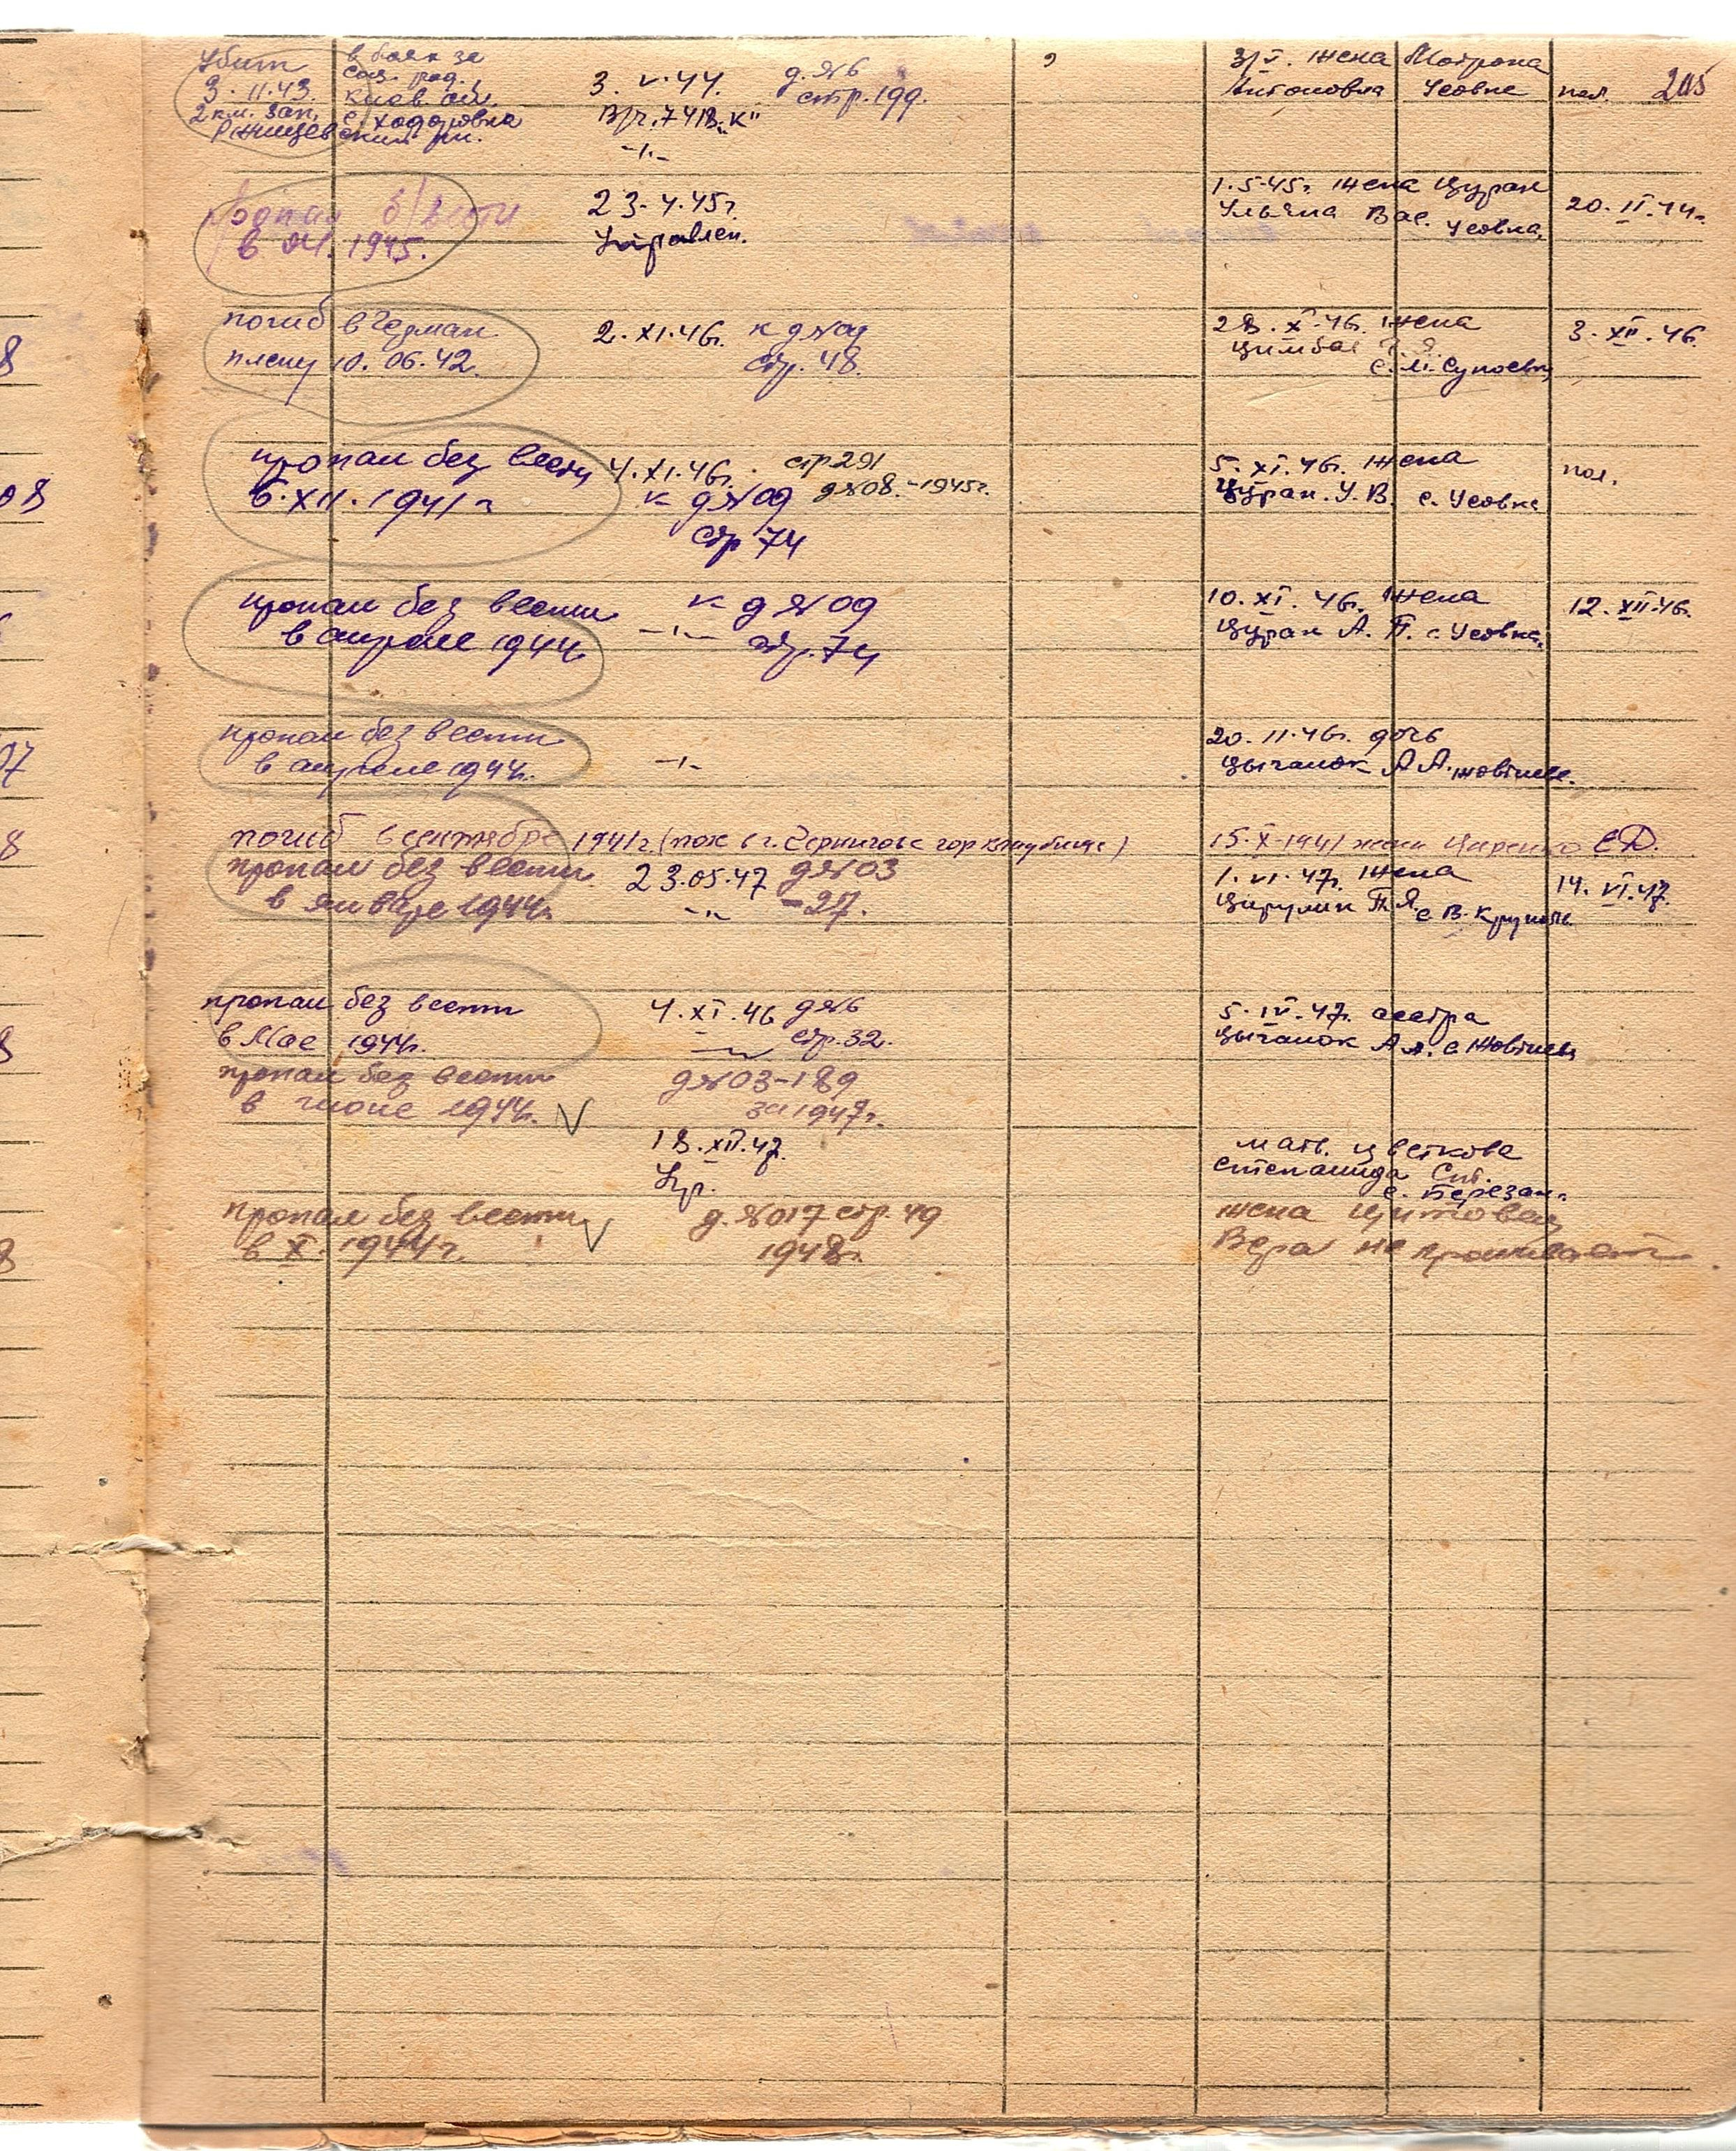 205
Убит в боях за
соц. род.
9.11.43. Киев. обл.
2 км. зап. с. Ходоровка
Ржищевский рн.
3.V.44. д.№6
стр.199.
В/ч.741В."К"
-"-
3/V. жена Мотрона
Антоновна Усовка пол.
Пропал б/вести
в 04.1945.
23.4.45г.
Управлен.
1.5.45г. жена Цуран
Ульяна Вас. Усовка,
20.II.44г.
погиб в Герман.
плену 10.06.42.
2.XI.46г. к д№09
стр.48.
28.X.46г. жена
Цимбал
с.М.Супоевка
3.XII.46
пропал без вести
6.XII.1941г
4.XI.46г. стр291
к д№09 д№08.-1945г.
стр 74
5.XI.46г. жена
Цуран.У.В. с.Усовка
пол.
пропал без вести
в апреле 1944г.
к д№09
-"- стр.74
10.XI.46г. жена
Цуран А.П. с.Усовка,
12.XII.46.
пропал без вести
в апреле 1944г.
-"-
20.11.46г. дочь
Цыганок А А.
погиб в сентябре 1941г (пох в г.Чернигове гор кладбище)
15.X-1941 жена Царенко Е.Д.
пропал без вести
в январе 1944г.
23.05.47 д№03
-"- -27.
1.VI.47г. жена
Цирулик П.Я. с В.Круполь
14.VI.47.
пропал без вести
в Мае 1944г.
4.XI.46 д№6
стр.32.
5.IV.47г. сестра
Цыганок А
пропал без вести
в июне 1944г. V
д№03-189
за 1947г.
18.XII.47.
Упр.
мать Цветкова
Степанида
с. Березан.
пропал без вести V
в X.1944г.
д.№017 стр.49
1948г.
жена
Вера не проживает